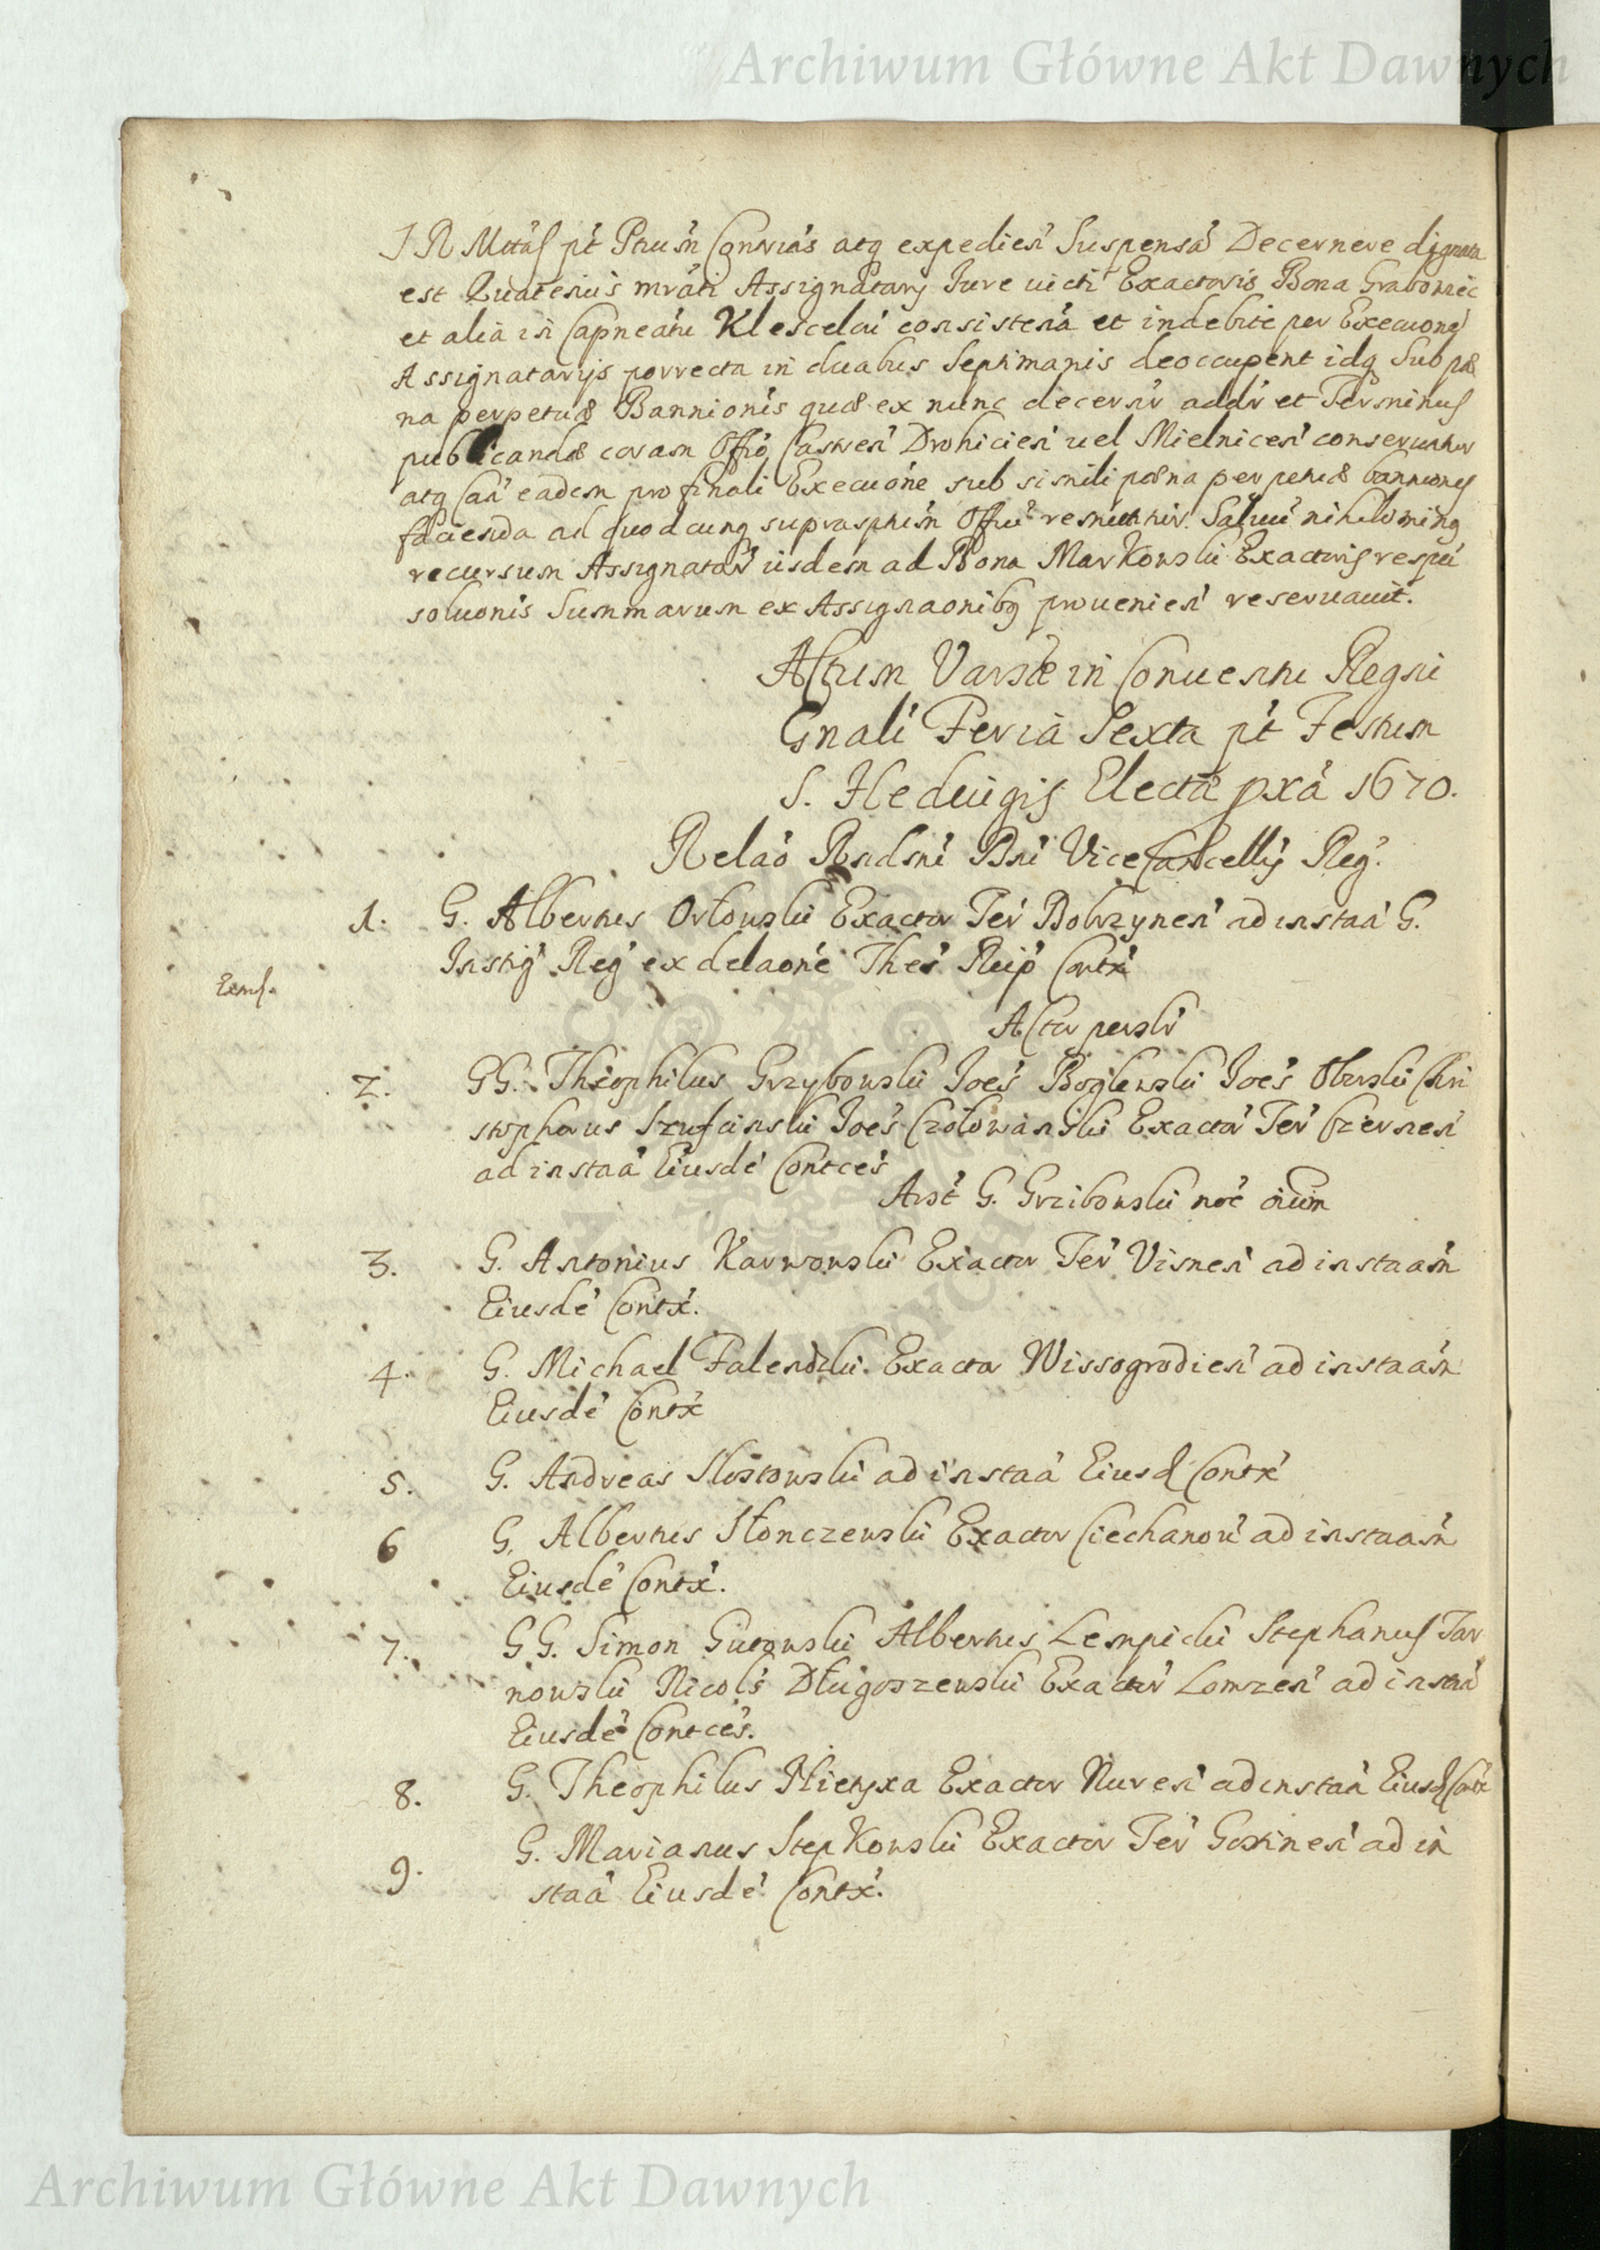 Archiwum Główne Akt Dawnych
S R Mttas pt Ptum Conuias atq expedien Suspensa Decernere dignata
est Quatenus mrati Assignatary Iure uicti Exactoris Bona Graboniec
et alia in Capneatu Klescelcu consistena et indebite per Execuones
Assignatarijs porrecta in duabus Septimanis deoccupent idq Sub pæ
na perpetuæ Bannionis quæ ex nunc decernr addr et Terminus
publicandæ coram Offio Castren Drohicien uel Mielnicen conseruatur
atq Caa eadem pro finali Execuone sub simili pæna perpetuæ bannionis
facienda ad quodcunq suprasptum Offiu remittitur. Saluu nihilominq
recursum Assignatar iisdem ad Bona Markowski Exactoris respu
soluonis Summarum ex Assignaonibq prouenien reseruauit.
Actum Varsæ in Conuentu Regni
Gnali Feria Sexta pt Festum
S. Heduigis Electæ pxa 1670.
Relao Rndmi Dni ViceCancellij Reg.
1. G. Albertus Orłowski Exactor Ter Dobrzynen ad instaa G.
Instig Reg ex delaone Thes Reip Contx
Actor persli
2. GG. Theophilus Grzybowski Joes Boglewski Joes Oborski Chri
stophorus Szufcinski Joes Czołowanski Exactor Ter Czernen
ad instaa Eiusde Contces
Arst G. Grzibowski noe oium
3. G. Antonius Karwowski Exactor Ter Visnen ad instaam
Eiusde Contx.
4. G. Michael Falendzki Exactor Wissogrodien ad instaam
Eiusde Contx
5. G. Andreas Mostowski ad instaa Eiusd Contx
6 G. Albertus Słonczewski Exactor Ciechanou ad instaam
Eiusde Contx.
7. GG. Simon Gutowski Albertus Lempicki Stephanus Tar
nowski Nicols Długoszewski Exactor Lomzen ad instaa
Eiusde Contces.
8. G. Theophilus Pietyxa Exactor Nuren ad instaa Eiusd Contx
9. G. Marianus Stepkowski Exactor Ter Gostinen ad in
staa Eiusde Contx.
Archiwum Główne Akt Dawnych